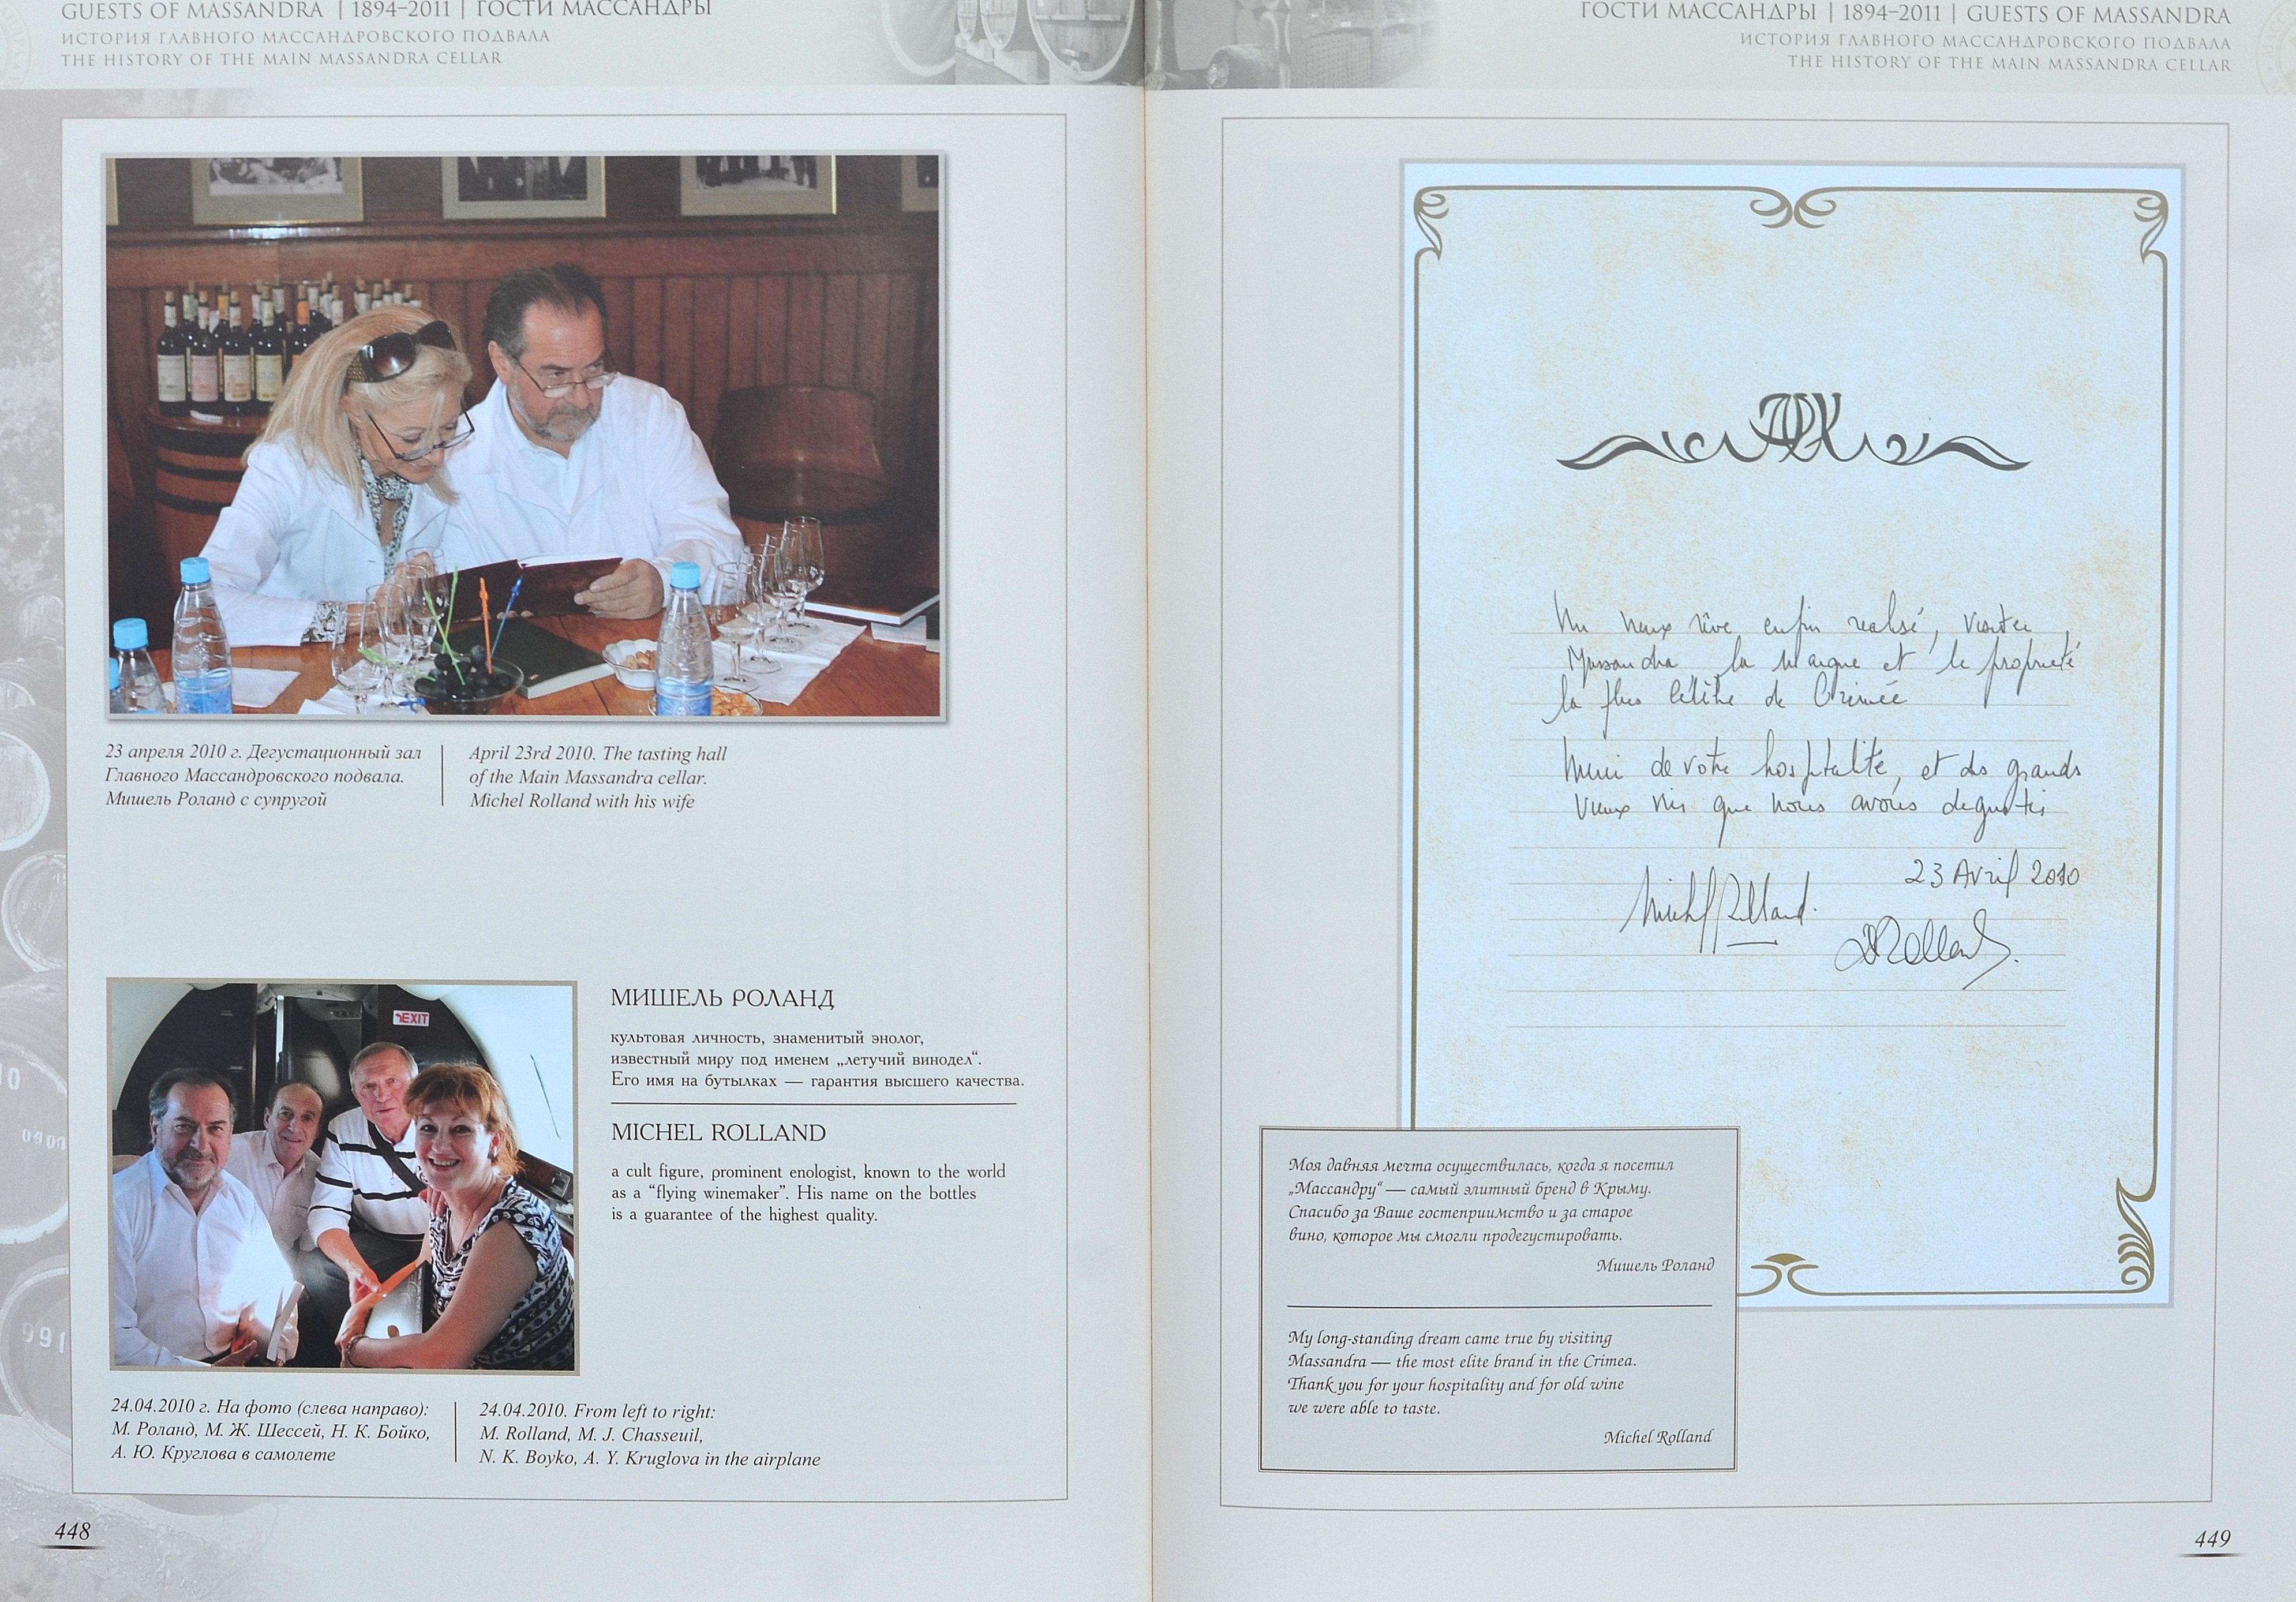 GUESTS OF MASSANDRA | 1894–2011 | ГОСТИ МАССАНДРЫ
ИСТОРИЯ ГЛАВНОГО МАССАНДРОВСКОГО ПОДВАЛА
THE HISTORY OF THE MAIN MASSANDRA CELLAR
23 апреля 2010 г. Дегустационный зал
Главного Массандровского подвала.
Мишель Роланд с супругой
April 23rd 2010. The tasting hall
of the Main Massandra cellar.
Michel Rolland with his wife
EXIT
МИШЕЛЬ РОЛАНД
культовая личность, знаменитый энолог,
известный миру под именем „летучий винодел“.
Его имя на бутылках — гарантия высшего качества.
MICHEL ROLLAND
a cult figure, prominent enologist, known to the world
as a “flying winemaker”. His name on the bottles
is a guarantee of the highest quality.
24.04.2010 г. На фото (слева направо):
М. Роланд, М. Ж. Шессей, Н. К. Бойко,
А. Ю. Круглова в самолете
24.04.2010. From left to right:
M. Rolland, M. J. Chasseuil,
N. K. Boyko, A. Y. Kruglova in the airplane
991
448
ГОСТИ МАССАНДРЫ | 1894–2011 | GUESTS OF MASSANDRA
ИСТОРИЯ ГЛАВНОГО МАССАНДРОВСКОГО ПОДВАЛА
THE HISTORY OF THE MAIN MASSANDRA CELLAR
Un vieux rêve enfin realisé, visiter
Massandra la Marque et la propriété
la plus célèbre de Crimée
Merci de votre hospitalité, et des grands
vieux vins que nous avons degustés
23 Avril 2010
Michel Rolland.
DRolland.
Моя давняя мечта осуществилась, когда я посетил
„Массандру“ — самый элитный бренд в Крыму.
Спасибо за Ваше гостеприимство и за старое
вино, которое мы смогли продегустировать.
Мишель Роланд
My long-standing dream came true by visiting
Massandra — the most elite brand in the Crimea.
Thank you for your hospitality and for old wine
we were able to taste.
Michel Rolland
449